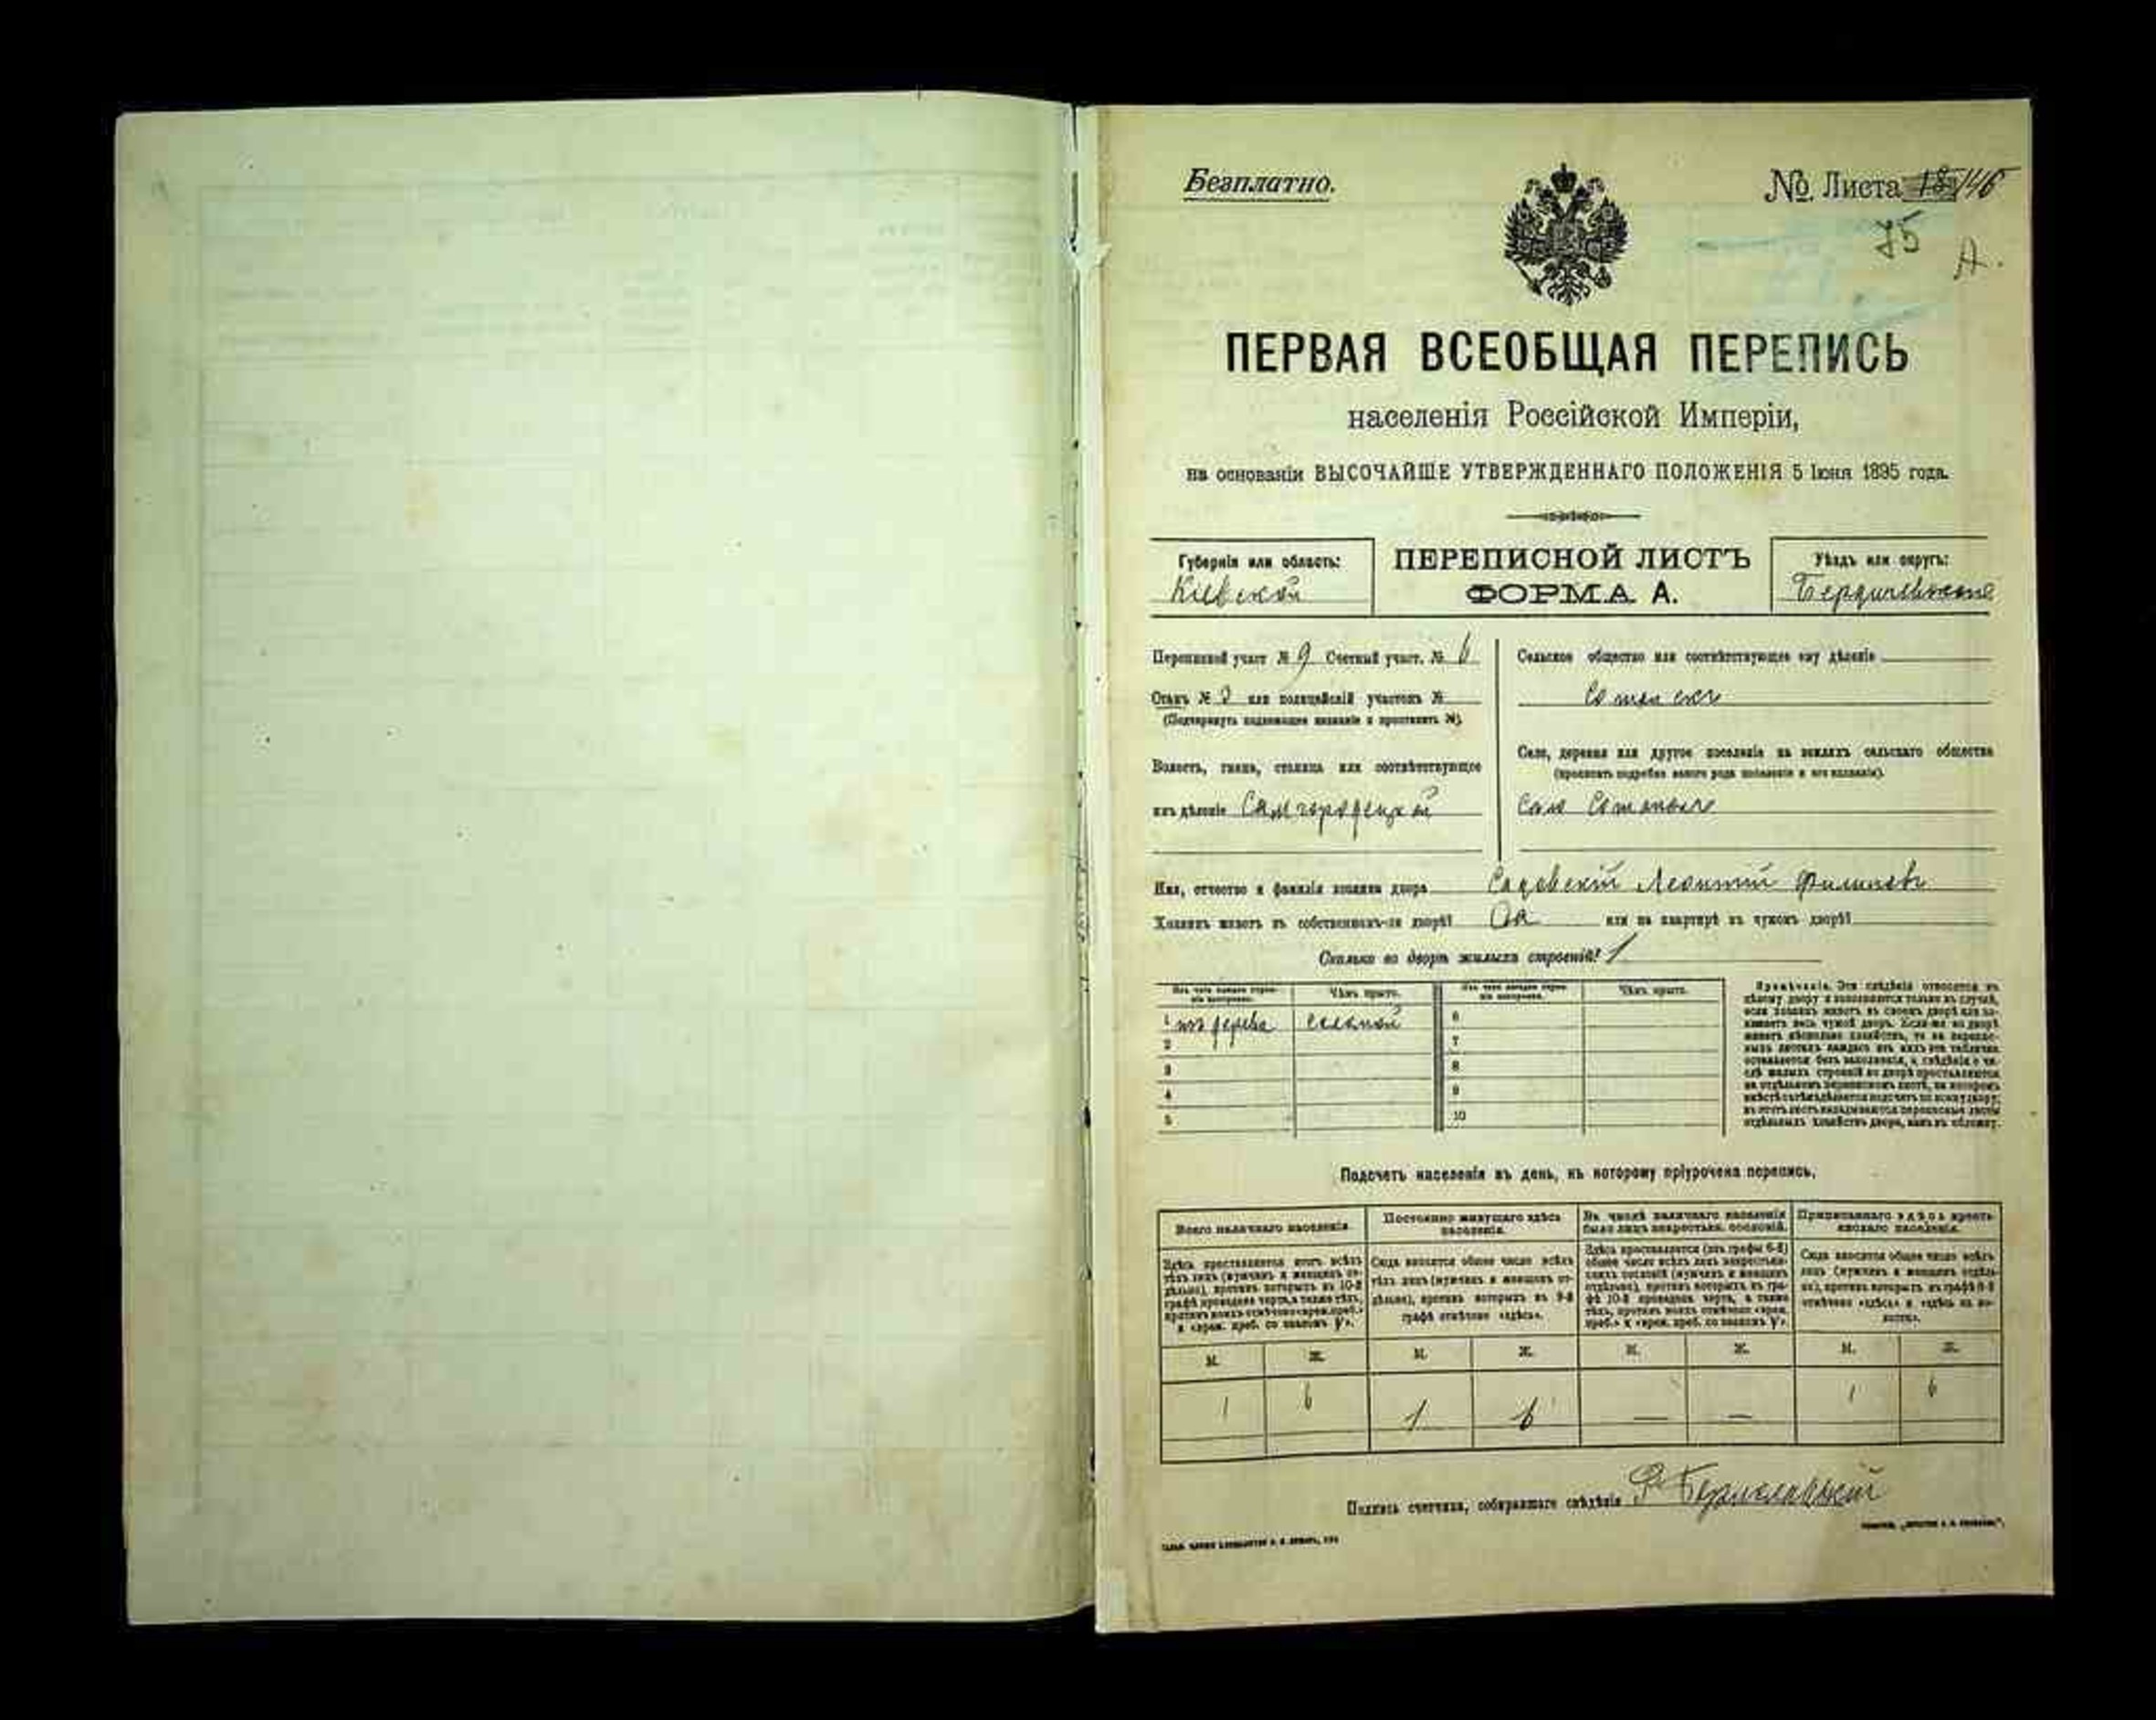 Безплатно.
№ Листа 18/146
75
А.
ПЕРВАЯ ВСЕОБЩАЯ ПЕРЕПИСЬ
населенія Россійской Имперіи,
на основаніи ВЫСОЧАЙШЕ УТВЕРЖДЕННАГО ПОЛОЖЕНІЯ 5 Іюня 1895 года.
Губернія или область:
Кіевской
ПЕРЕПИСНОЙ ЛИСТЪ
ФОРМА А.
Уѣздъ или округъ:
Бердичевскаго
Переписной участ. № 9 Счетный участ. № 6
Станъ № 3 или полицейскій участокъ №
(Подчеркнуть надлежащее названіе и проставить №).
Волость, гмина, станица или соотвѣтствующее
имъ дѣленіе Самгородецкой
Сельское общество или соотвѣтствующее ему дѣленіе
Село, деревня или другое поселеніе на земляхъ сельскаго общества
(прописать подробно какого рода поселеніе и его названіе).
Село
Имя, отчество и фамилія хозяина двора Садовскій Леонтій Филиповъ
Хозяинъ живетъ въ собственномъ-ли дворѣ? Да или на квартирѣ въ чужомъ дворѣ?
Сколько во дворѣ жилыхъ строеній? 1
Изъ чего каждое строеніе построено. Чѣмъ крыто. Изъ чего каждое строеніе построено. Чѣмъ крыто.
1 изъ дерева соломой 6
2 7
3 8
4 9
5 10
Примѣчаніе. Эти свѣдѣнія относятся къ
цѣлому двору и заполняются только въ случаѣ,
если хозяинъ живетъ въ своемъ дворѣ или за-
нимаетъ весь чужой дворъ. Если-же во дворѣ
живетъ нѣсколько хозяйствъ, то на перепис-
ныхъ листахъ каждаго изъ нихъ эти таблички
оставляются безъ заполненія, а свѣдѣнія о чи-
слѣ жилыхъ строеній во дворѣ проставляются
на отдѣльномъ переписномъ листѣ, на которомъ
вмѣстѣ съ тѣмъ дѣлается подсчетъ по всему двору;
въ этотъ листъ вкладываются переписные листы
отдѣльныхъ хозяйствъ двора, какъ въ обложку.
Подсчетъ населенія въ день, къ которому пріурочена перепись.
Всего наличнаго населенія.
Здѣсь проставляется итогъ всѣхъ
тѣхъ лицъ (мужчинъ и женщинъ от-
дѣльно), противъ которыхъ въ 10-й
графѣ проведена черта, а также тѣхъ,
противъ коихъ отмѣчено «врем. преб.»
и «врем. преб. со знакомъ V».
Постоянно живущаго здѣсь
населенія.
Сюда вносится общее число всѣхъ
тѣхъ лицъ (мужчинъ и женщинъ от-
дѣльно), противъ которыхъ въ 9-й
графѣ отмѣчено «здѣсь».
Въ числѣ наличнаго населенія
было лицъ некрестьян. сословій.
Здѣсь проставляется (изъ графы 6-й)
общее число всѣхъ лицъ некрестьян-
скихъ сословій (мужчинъ и женщинъ
отдѣльно), противъ которыхъ въ гра-
фѣ 10-й проведена черта, а также
тѣхъ, противъ коихъ отмѣчено «врем.
преб.» и «врем. преб. со знакомъ V».
Приписаннаго здѣсь кресть-
янскаго населенія.
Сюда вносится общее число всѣхъ
лицъ (мужчинъ и женщинъ отдѣль-
но), противъ которыхъ въ графѣ 8-й
отмѣчено «здѣсь» и «здѣсь на во-
лости».
М. Ж. М. Ж. М. Ж. М. Ж.
1 6 1 6 — — 1 6
Подпись счетчика, собиравшаго свѣдѣнія